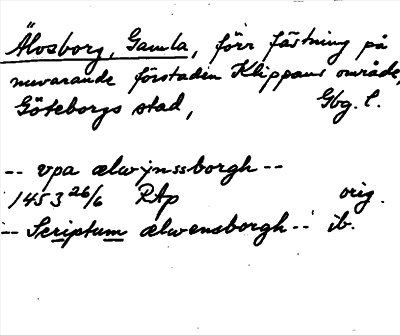 Älvsborg, Gamla, förr fästning på
nuvarande förstaden Klippans område,
Göteborgs stad, Gbg. l.
-- vpa ælwijnssborgh --
1453 26/6 RAp orig.
-- Scriptum ælwensborgh -- ib.